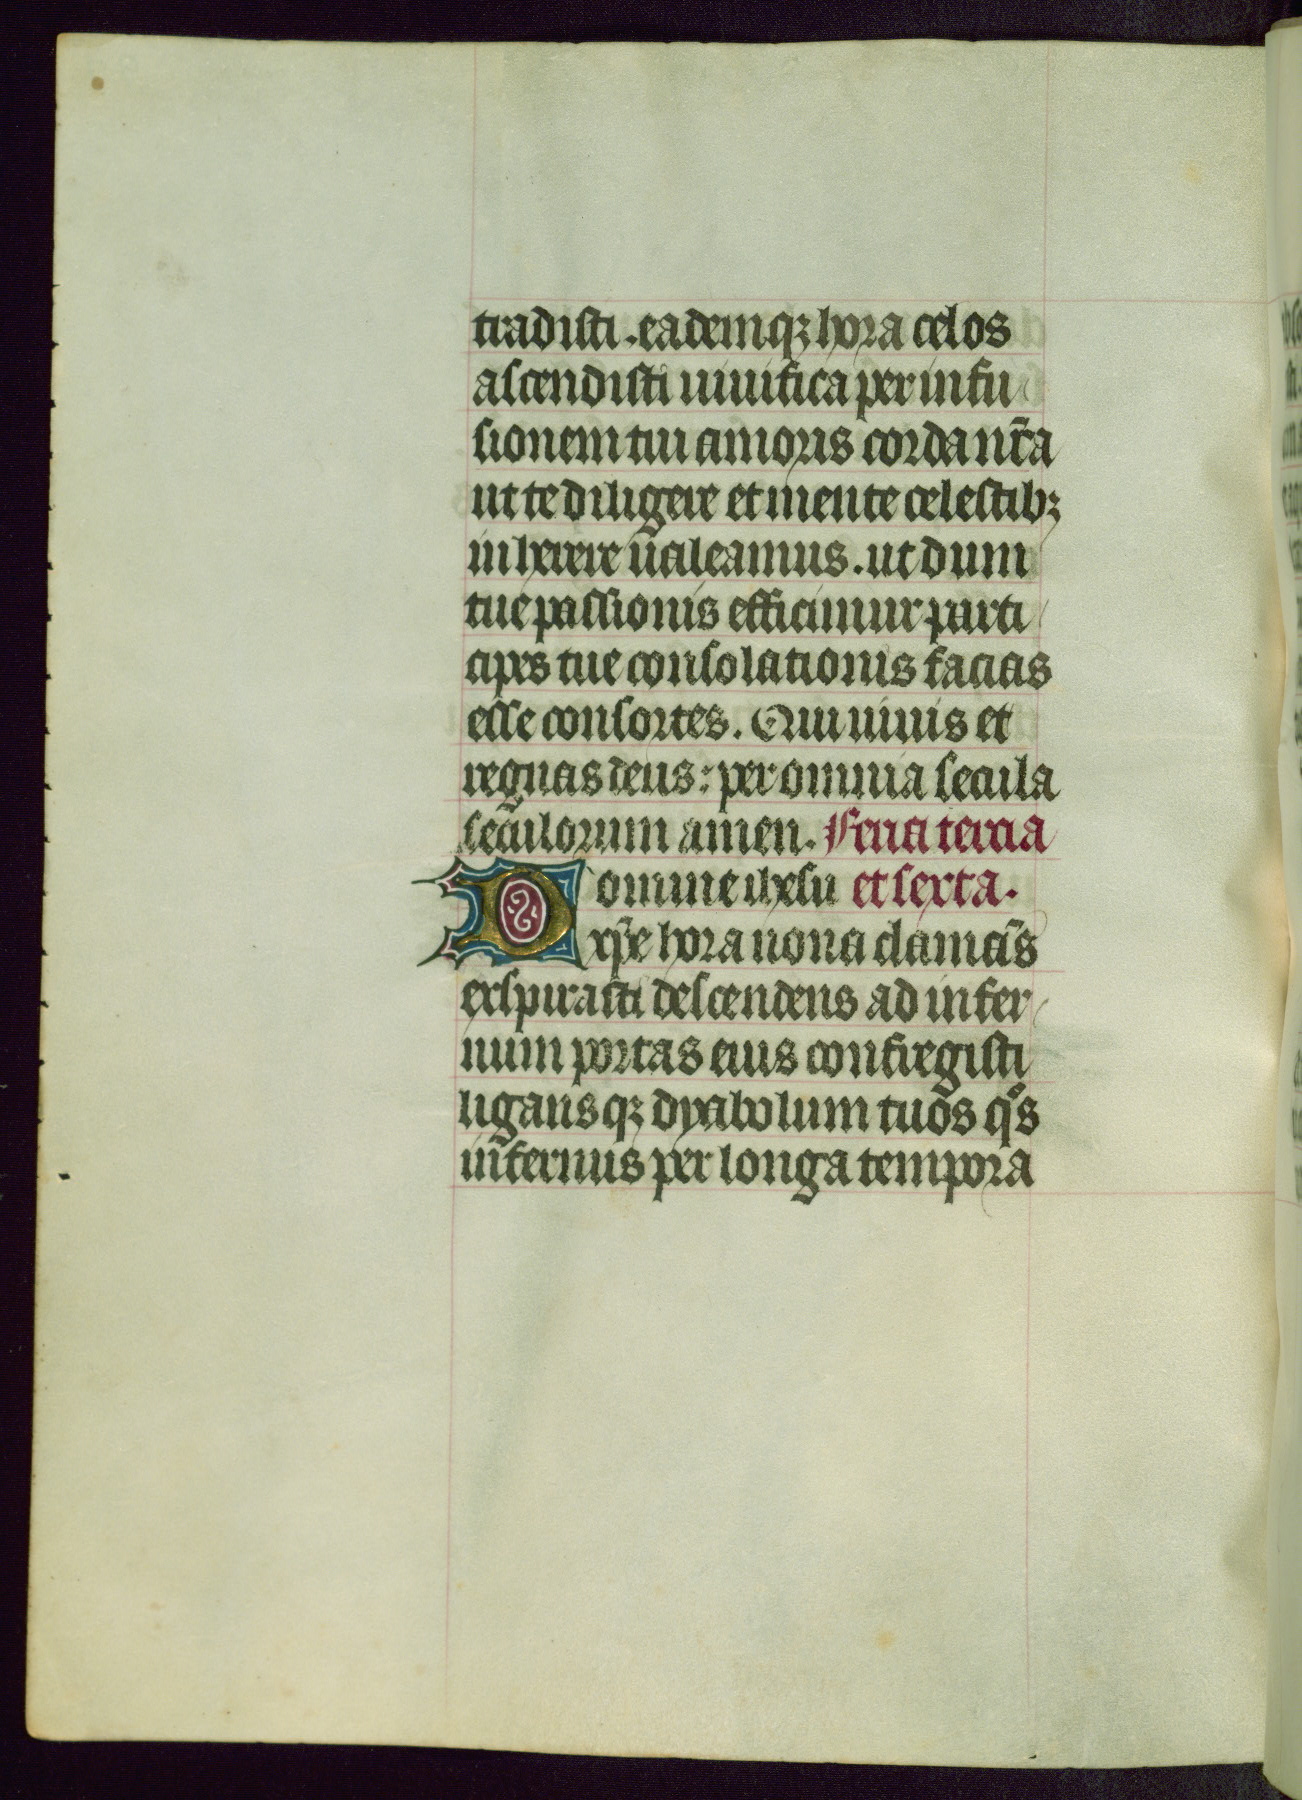 tradisti. eademqꝫ hora celos
ascendisti uiuifica per infu
sionem tui amoris corda nr̄a
ut te diligere et mente celestibꝫ
inherere ualeamus. ut dum
tue passionis efficimur parti
cipes tue consolationis facias
esse consortes. Qui uiuis et
regnas deus: per omnia secula
seculorum amen. Feria tercia
Domine ihesu et sexta.
xp̄e hora nona clamās
exspirasti descendens ad infer
num portas eius confregisti
ligansqꝫ dyabolum tuos qͦs
infernus per longa tempora